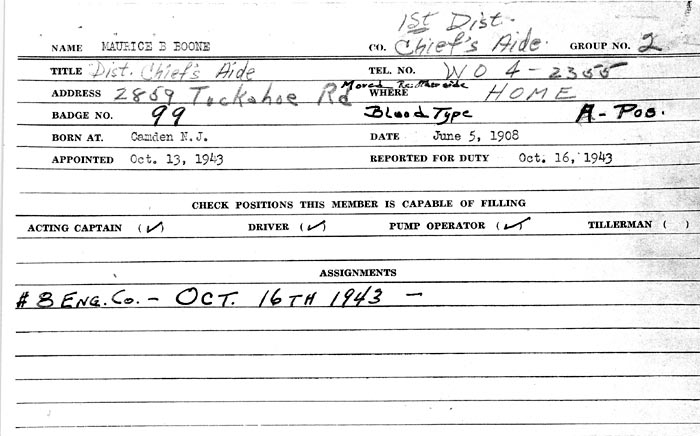 1st Dist.
NAME MAURICE B BOONE CO. Chief's Aide. GROUP NO. 2
TITLE Dist. Chief's Aide TEL. NO. WO 4-2355
ADDRESS 2859 Tuckahoe Rd Moved WHERE HOME
BADGE NO. 99 Blood Type A-Pos.
BORN AT. Camden N.J. DATE June 5, 1908
APPOINTED Oct. 13, 1943 REPORTED FOR DUTY Oct. 16, 1943
CHECK POSITIONS THIS MEMBER IS CAPABLE OF FILLING
ACTING CAPTAIN (✓) DRIVER (✓) PUMP OPERATOR (✓) TILLERMAN ( )
ASSIGNMENTS
#8 ENG. Co. - OCT. 16TH 1943 -